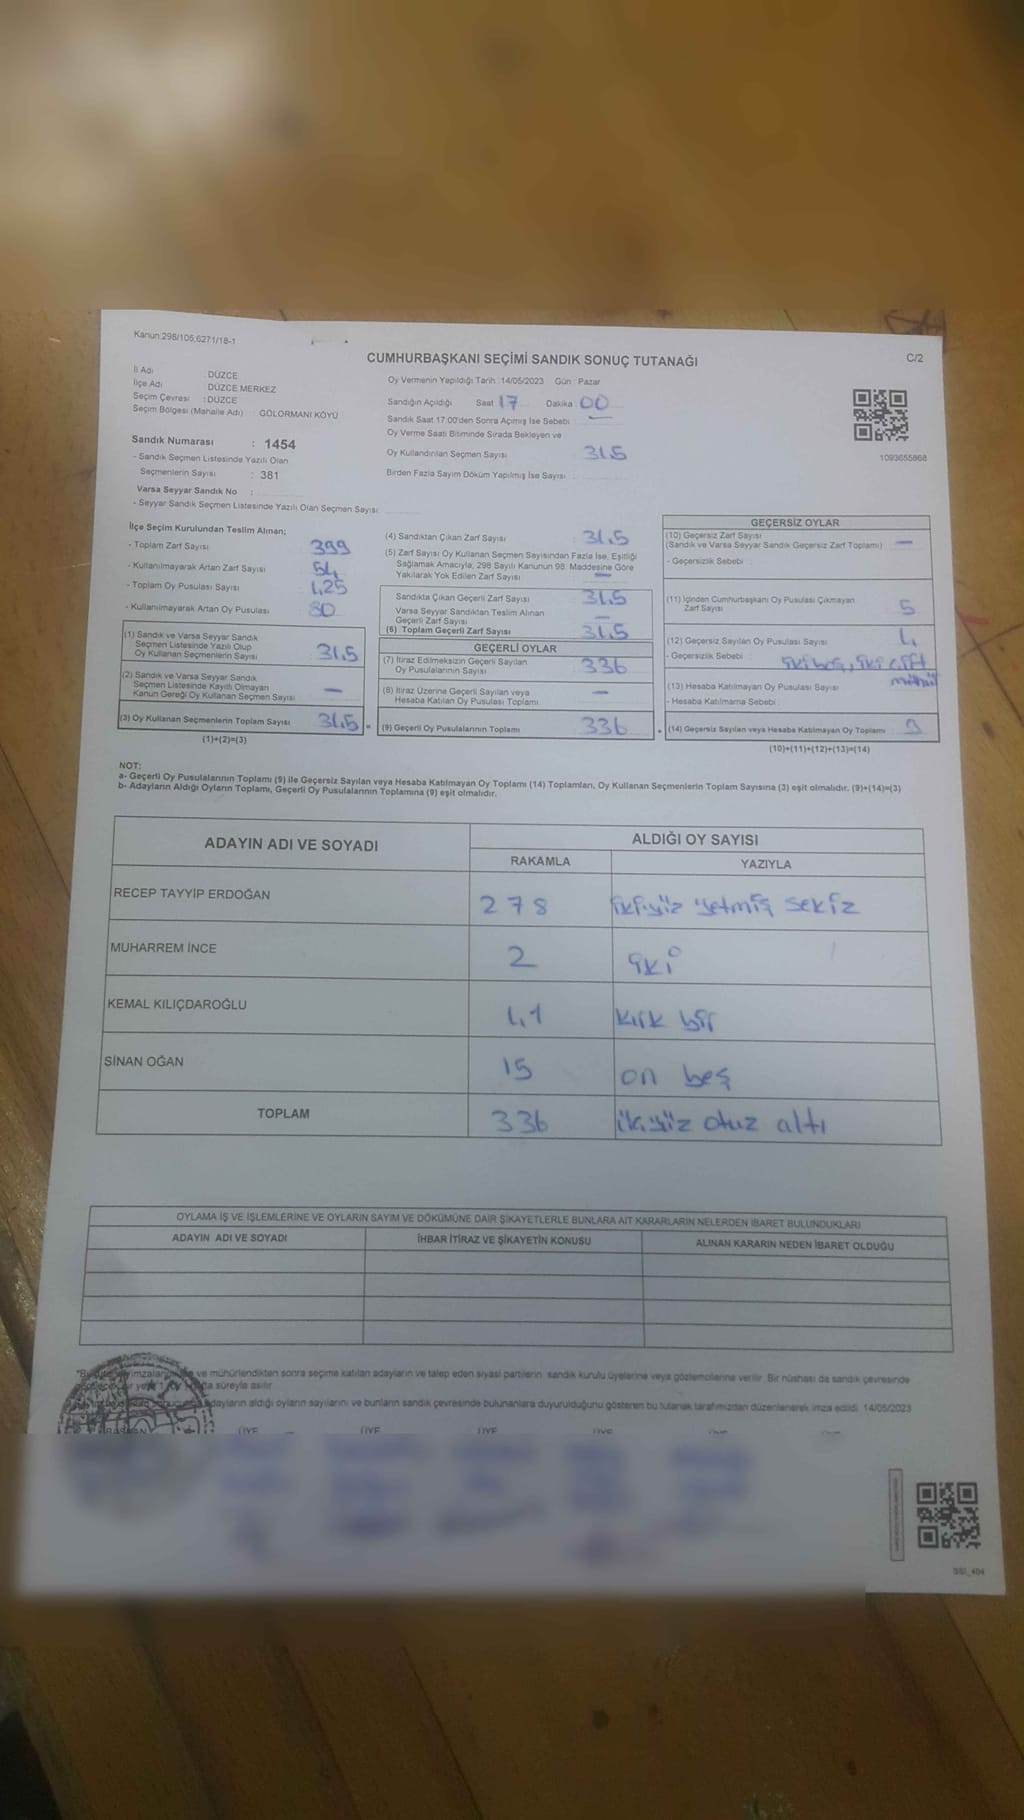 Kanun:298/105;6271/18-1
CUMHURBAŞKANI SEÇİMİ SANDIK SONUÇ TUTANAĞI
C/2
İl Adı : DÜZCE
İlçe Adı : DÜZCE MERKEZ
Seçim Çevresi : DÜZCE
Seçim Bölgesi (Mahalle Adı) : GÖLORMANI KÖYÜ
Sandık Numarası : 1454
- Sandık Seçmen Listesinde Yazılı Olan
Seçmenlerin Sayısı : 381
Varsa Seyyar Sandık No :
- Seyyar Sandık Seçmen Listesinde Yazılı Olan Seçmen Sayısı:
Oy Vermenin Yapıldığı Tarih : 14/05/2023 Gün : Pazar
Sandığın Açıldığı Saat 17 Dakika 00
Sandık Saat 17:00'den Sonra Açımış İse Sebebi : —
Oy Verme Saati Bitiminde Sırada Bekleyen ve
Oy Kullandırılan Seçmen Sayısı : 345
Birden Fazla Sayım Döküm Yapılmış İse Sayısı :
1093655868
İlçe Seçim Kurulundan Teslim Alınan;
- Toplam Zarf Sayısı 399
- Kullanılmayarak Artan Zarf Sayısı 54
- Toplam Oy Pusulası Sayısı 425
- Kullanılmayarak Artan Oy Pusulası 80
(1) Sandık ve Varsa Seyyar Sandık
Seçmen Listesinde Yazılı Olup
Oy Kullanan Seçmenlerin Sayısı 345
(2) Sandık ve Varsa Seyyar Sandık
Seçmen Listesinde Kayıtlı Olmayan
Kanun Gereği Oy Kullanan Seçmen Sayısı —
(3) Oy Kullanan Seçmenlerin Toplam Sayısı 345 =
(1)+(2)=(3)
(4) Sandıktan Çıkan Zarf Sayısı : 345
(5) Zarf Sayısı Oy Kullanan Seçmen Sayısından Fazla İse, Eşitliği
Sağlamak Amacıyla, 298 Sayılı Kanunun 98. Maddesine Göre
Yakılarak Yok Edilen Zarf Sayısı : —
Sandıkta Çıkan Geçerli Zarf Sayısı : 345
Varsa Seyyar Sandıktan Teslim Alınan
Geçerli Zarf Sayısı : —
(6) Toplam Geçerli Zarf Sayısı : 345
GEÇERLİ OYLAR
(7) İtiraz Edilmeksizin Geçerli Sayılan
Oy Pusulalarının Sayısı : 336
(8) İtiraz Üzerine Geçerli Sayılan veya
Hesaba Katılan Oy Pusulası Toplamı : —
(9) Geçerli Oy Pusulalarının Toplamı : 336 +
GEÇERSİZ OYLAR
(10) Geçersiz Zarf Sayısı
(Sandık ve Varsa Seyyar Sandık Geçersiz Zarf Toplamı) : —
- Geçersizlik Sebebi :
(11) İçinden Cumhurbaşkanı Oy Pusulası Çıkmayan
Zarf Sayısı : 5
(12) Geçersiz Sayılan Oy Pusulası Sayısı : 4
- Geçersizlik Sebebi : iki boş, iki çift
mühür
(13) Hesaba Katılmayan Oy Pusulası Sayısı :
- Hesaba Katılmama Sebebi :
(14) Geçersiz Sayılan veya Hesaba Katılmayan Oy Toplamı : 9
(10)+(11)+(12)+(13)=(14)
NOT:
a- Geçerli Oy Pusulalarının Toplamı (9) ile Geçersiz Sayılan veya Hesaba Katılmayan Oy Toplamı (14) Toplamları, Oy Kullanan Seçmenlerin Toplam Sayısına (3) eşit olmalıdır. (9)+(14)=(3)
b- Adayların Aldığı Oyların Toplamı, Geçerli Oy Pusulalarının Toplamına (9) eşit olmalıdır.
ADAYIN ADI VE SOYADI
ALDIĞI OY SAYISI
RAKAMLA YAZIYLA
RECEP TAYYİP ERDOĞAN 278 ikiyüz yetmiş sekiz
MUHARREM İNCE 2 iki
KEMAL KILIÇDAROĞLU 41 kırk bir
SİNAN OĞAN 15 on beş
TOPLAM 336 otuz altı
OYLAMA İŞ VE İŞLEMLERİNE VE OYLARIN SAYIM VE DÖKÜMÜNE DAİR ŞİKAYETLERLE BUNLARA AİT KARARLARIN NELERDEN İBARET BULUNDUKLARI
ADAYIN ADI VE SOYADI İHBAR İTİRAZ VE ŞİKAYETİN KONUSU ALINAN KARARIN NEDEN İBARET OLDUĞU
ve mühürlendikten sonra seçime katılan adayların ve talep eden siyasi partilerin sandık kurulu üyelerine veya gözlemcilerine verilir. Bir nüshası da sandık çevresinde
süreyle asılır.
adayların aldığı oyların sayılarını ve bunların sandık çevresinde bulunanlara duyurulduğunu gösteren bu tutanak tarafımızdan düzenlenerek imza edildi. 14/05/2023
BAŞKAN ÜYE ÜYE ÜYE ÜYE
SSI_404